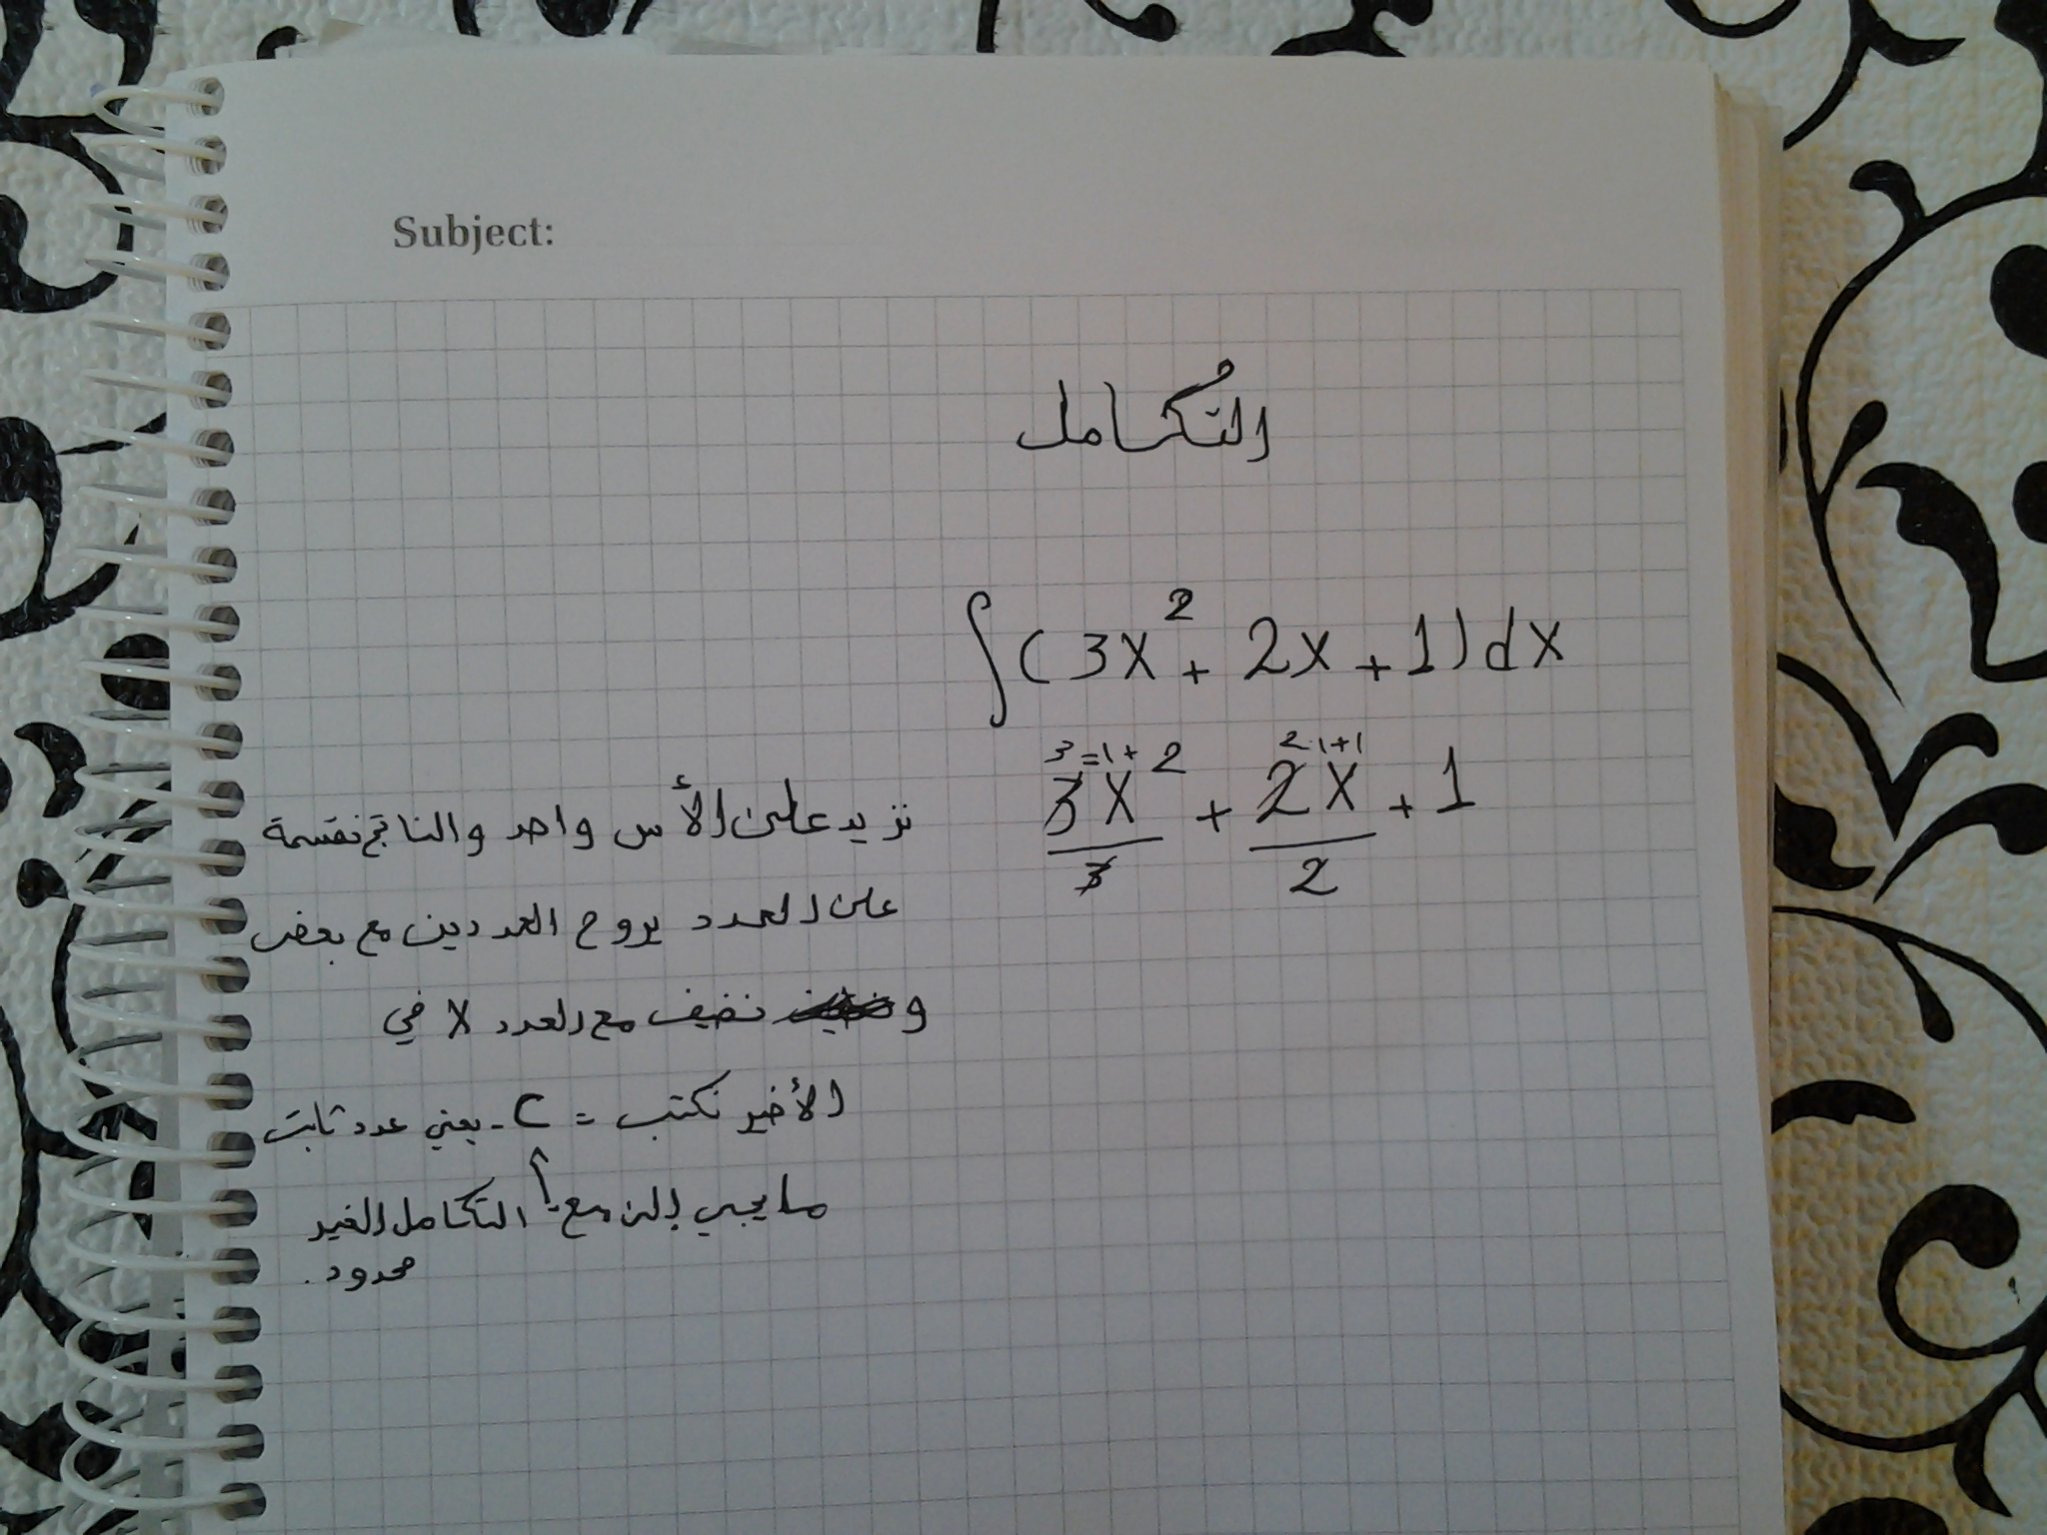 Subject:
التُكامل
∫(3x² + 2x + 1)dx
3=1+2 2 1+1
3X + 2X + 1
3 2
نزيد على الأس واحد والناتج نقسمة
على العدد يروح العددين مع بعض
و نضيف مع العدد X في
الأخير نكتب = C - يعني عدد ثابت
ما يجي إلا مع التكامل الغير
محدود.